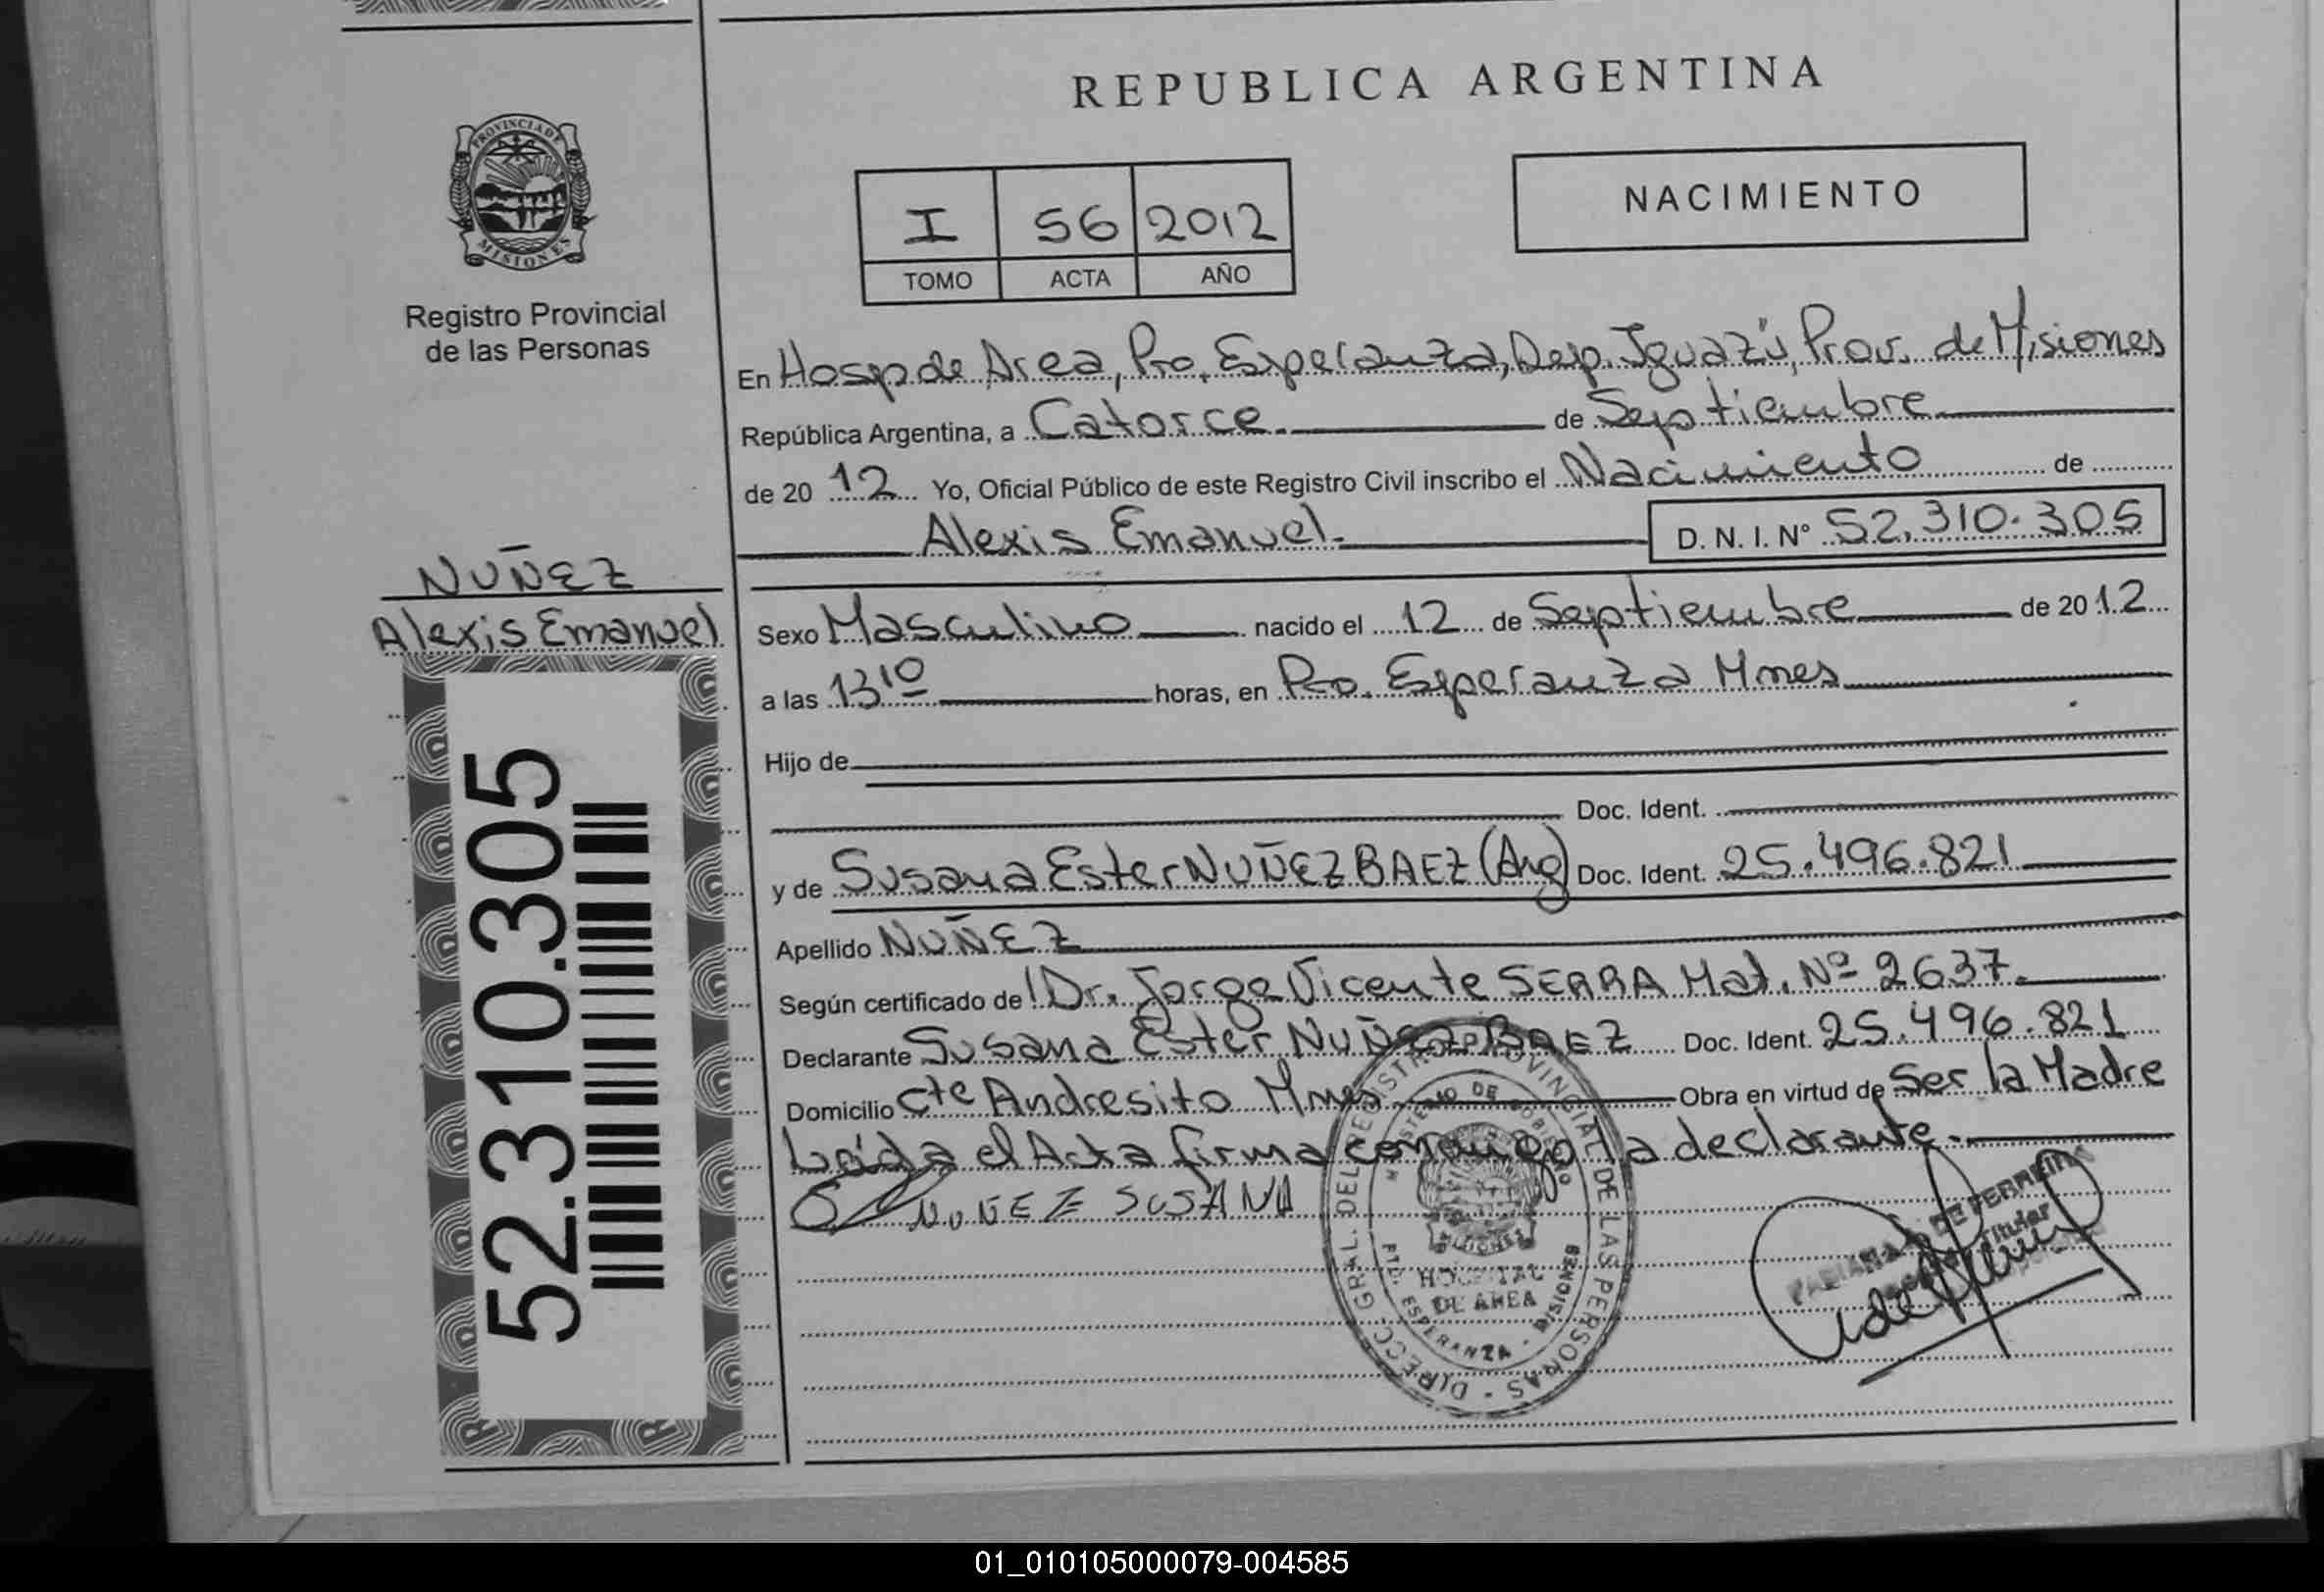 REPUBLICA ARGENTINA
PROVINCIA DE
MISIONES
Registro Provincial
de las Personas
I 56 2012
TOMO ACTA AÑO
NACIMIENTO
En Hosp de Area, Pto. Esperanza, Dep. Iguazú, Prov. de Misiones
República Argentina, a Catorce. de Septiembre
de 20 12 Yo, Oficial Público de este Registro Civil inscribo el Nacimiento de
Alexis Emanuel. D. N. I. Nº 52.310.305
NUÑEZ
Alexis Emanuel
52.310.305
Sexo Masculino nacido el 12 de Septiembre de 20 12
a las 13 10 horas, en Pto. Esperanza Mnes
Hijo de
Doc. Ident.
y de Susana Ester NUÑEZ BAEZ (Arg) Doc. Ident. 25.496.821
Apellido NUÑEZ
Según certificado de Dr. Jorge Vicente SERRA Mat. Nº 2637.
Declarante Susana Ester NUÑEZ BAEZ Doc. Ident. 25.496.821
Domicilio Cte Andresito Mnes Obra en virtud de Ser la Madre
Leída el Acta firma conmigo la declarante.
NUÑEZ SUSANA
DIRECC. GRAL. DEL REGISTRO PROVINCIAL DE LAS PERSONAS
MINISTERIO DE GOBIERNO
HOSPITAL
DE AREA
PTO. ESPERANZA - MISIONES
DE FERREIRA
Titular
01_010105000079-004585